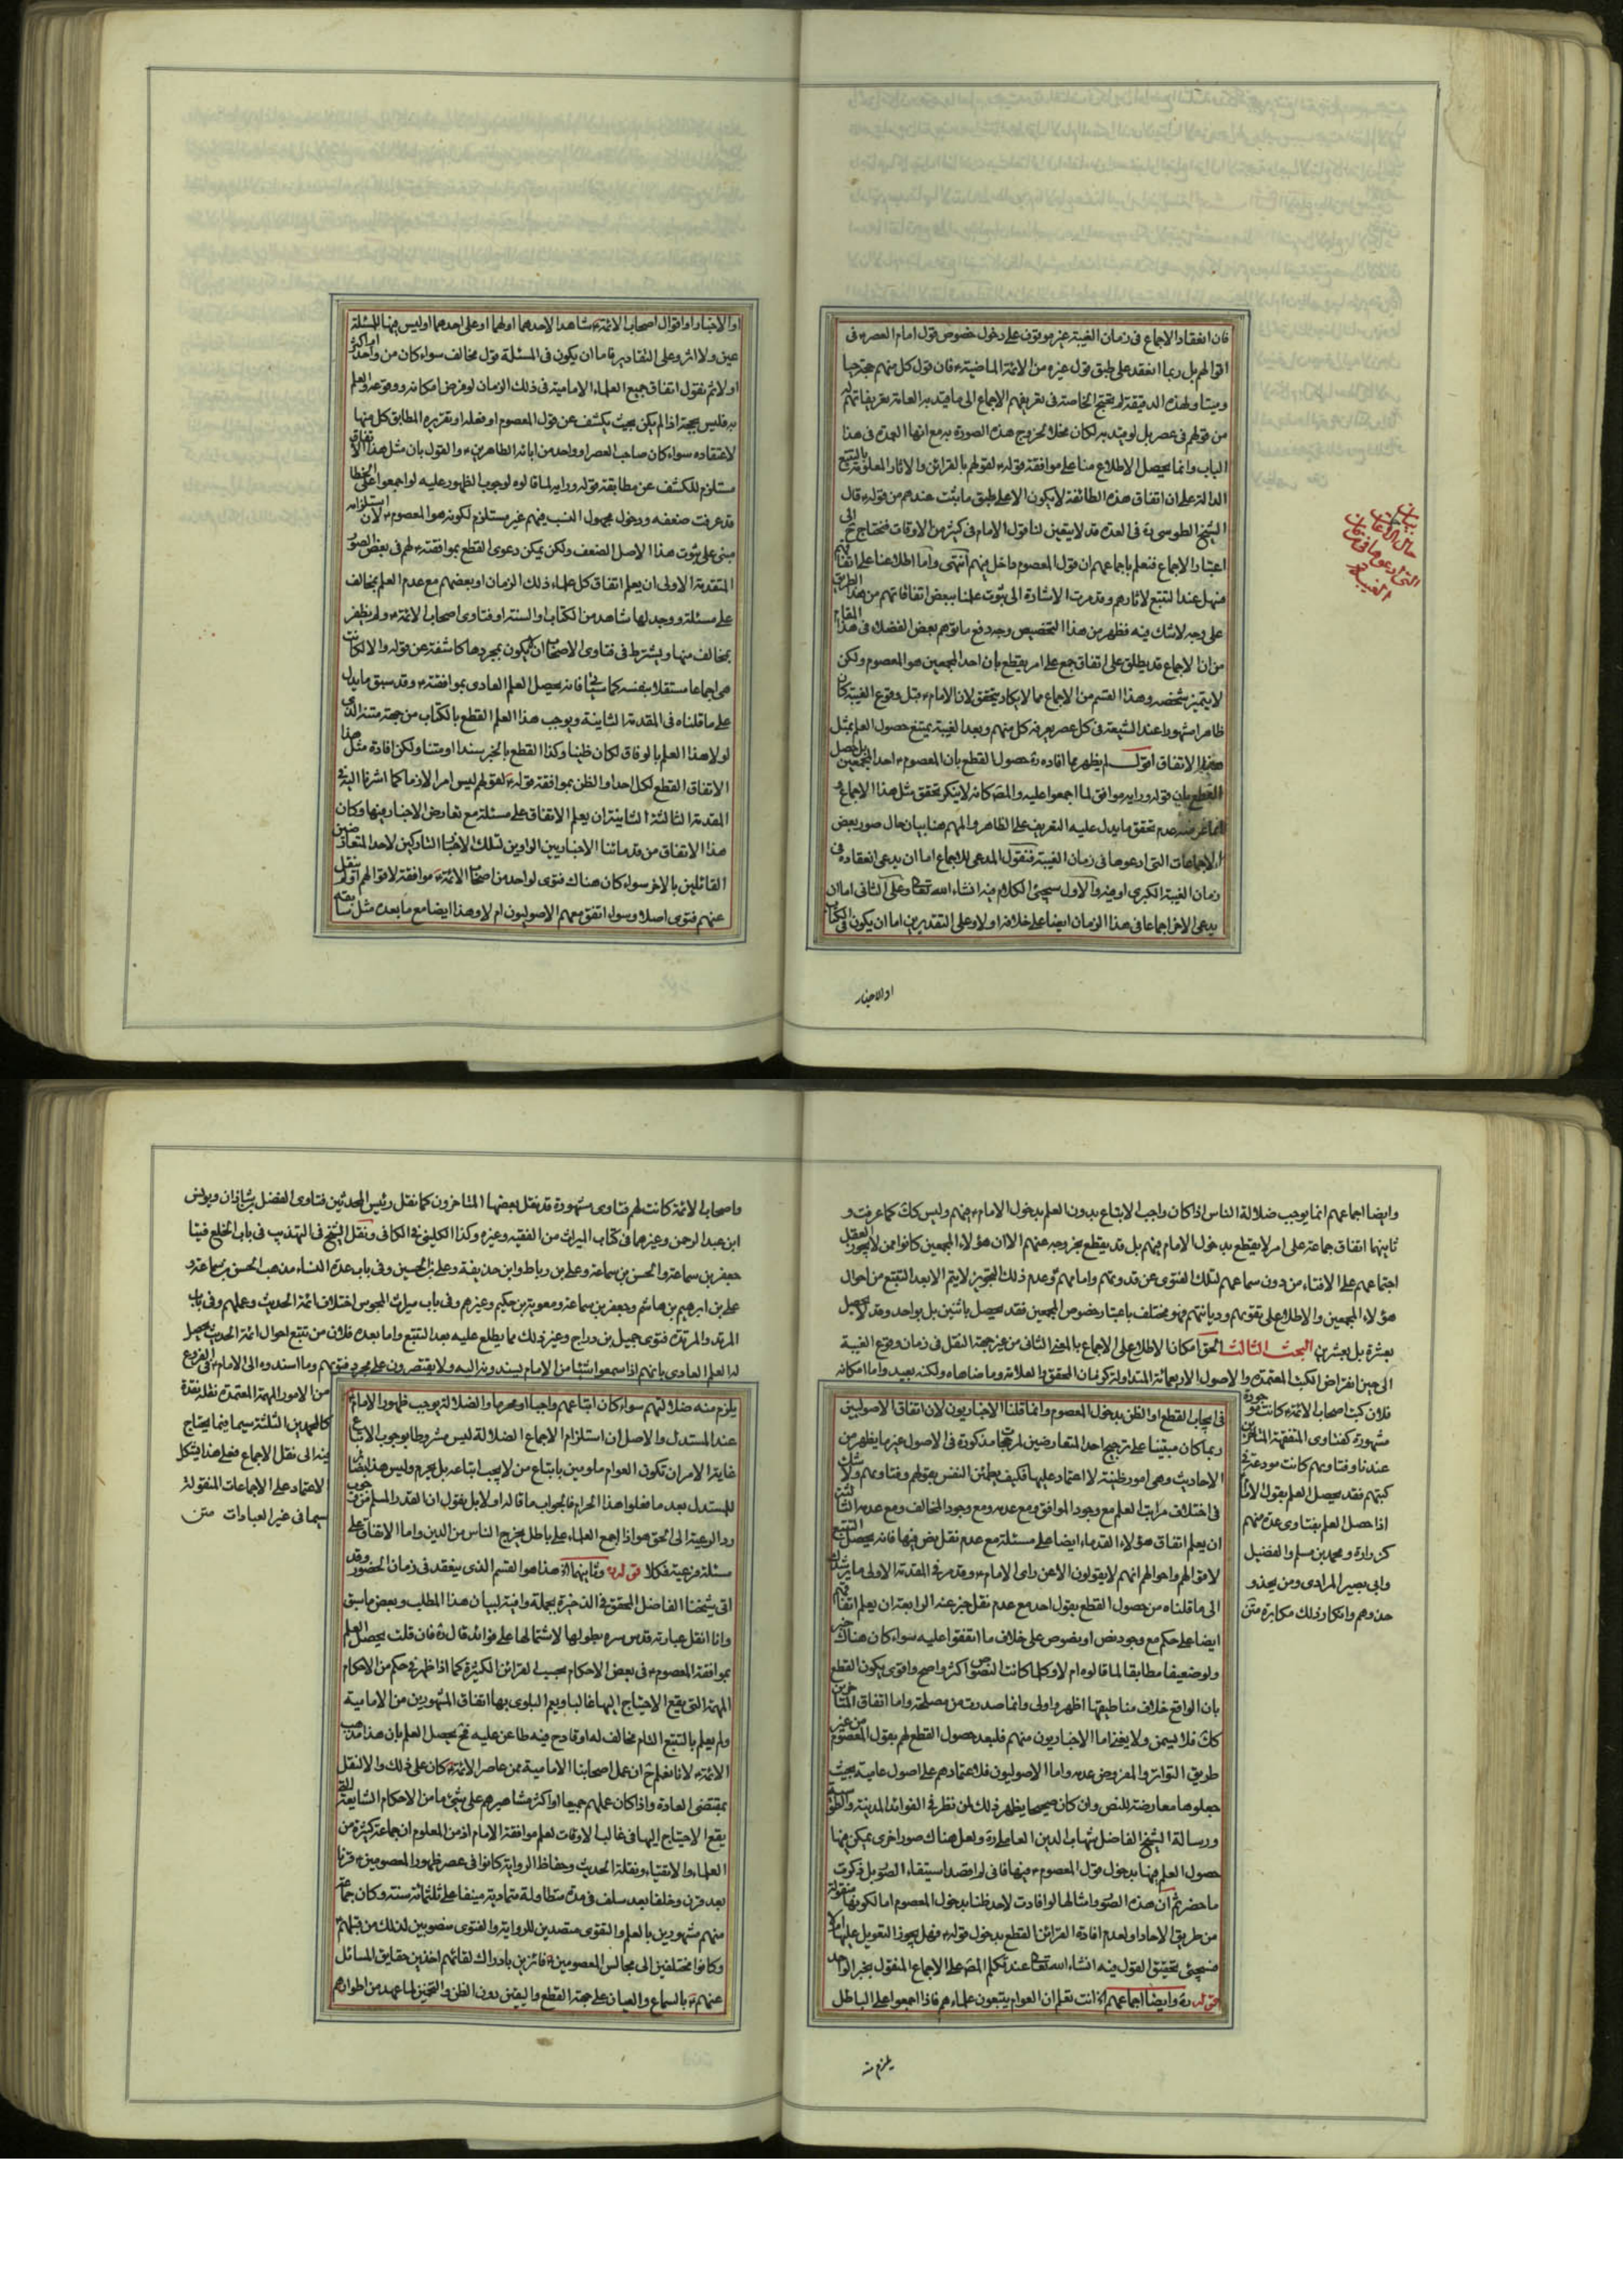 فان انعقاد الاجماع فى زمان الغيبة غير موقوف على دخول خصوص قول امام العصر فى
اقوالهم بل ربما انعقد على طبق قول غيره من الائمة الماضية فان قول كل منهم حجة حيا
وميتا ولهذه الدقيقة لم يحتج الخاصة فى تعريفهم الاجماع الى ما قيد به العامة تعريفاتهم له
من قولهم فى عصر بل لو قيد به لكان مخلا لخروج هذه الصورة به مع انها العمدة فى هذا
الباب وانما يحصل الاطلاع منا على موافقة قوله لقولهم بالقرائن والاثار المعلومة بالتتبع
الدالة على ان اتفاق هذه الطائفة لا يكون الا على طبق ما يثبت عندهم من قوله قال
الشيخ الطوسى ره فى العدة قد لا يتعين لنا قول الامام فى كثير من الاوقات فنحتاج ح الى
اعتبار الاجماع فنعلم باجماعهم ان قول المعصوم داخل فيهم انتهى واما اطلاعنا على اتفاقهم
فيهل عند التتبع لاثارهم وقد مرت الاشارة الى ثبوت علمنا ببعض اتفاقاتهم من هذا الطريق
على وجه لا شك فيه فظهر من هذا التخصيص وجه دفع ما توهم بعض الفضلاء فى هذا المقام
من ان الاجماع قد يطلق على اتفاق جمع على امر يقطع بان احد المجمعين هو المعصوم ولكن
لا يتميز شخصه وهذا القسم من الاجماع مما لا يكاد يتحقق لان الامام قبل وقوع الغيبة كان
ظاهرا مشهورا عند الشيعة فى كل عصر يعرفه كل منهم وبعد الغيبة يمتنع حصول العلم بمثل
هذا الاتفاق اقول لم يظهر مما افاده ره حصول القطع بان المعصوم احد المجمعين بل حصل
القطع بان قوله ورايه موافق لما اجمعوا عليه والمصـ كانه لا ينكر تحقق مثل هذا الاجماع و
انما غرضه عدم تحقق ما يدل عليه التعريف على الظاهر والمهم هنا بيان حال صور بعض
الاجماعات التى ادعوها فى زمان الغيبة فنقول المدعى للاجماع اما ان يدعى انعقاده فى
زمان الغيبة الكبرى او غيره والاول سيجئ الكلام فيه انشاء الله تعالى وعلى الثانى اما ان
يدعى الاخر اجماعا فى هذا الزمان ايضا على خلافه او لا وعلى التقديرين اما ان يكون فى الكتاب
او الاخبار
بيان
حال الاجماعات
التى ادعوها فى زمان
الغيبة
او الاخبار او اقوال اصحاب الائمة شاهدا لاحدهما او لهما او على احدهما او ليس فيها للمسئلة
عين ولا اثر وعلى التقادير فاما ان يكون فى المسئلة قول مخالف سواء كان من واحد او اكثر
او لا ثم نقول اتفاق جميع العلماء الامامية فى ذلك الزمان لو فرض امكانه ووقوعه والعلم
به فليس بحجة اذا لم يكن بحيث يكشف عن قول المعصوم او فعله او تقريره المطابق كل منها
لاعتقاده سواء كان صاحب العصر او واحد من ابائه الطاهرين والقول بان مثل هذا الاتفاق
مستلزم للكشف عن مطابقة قوله ورايه لما قالوه لوجوب الظهور عليه لو اجمعوا على الخطا
قد عرفت ضعفه ودخول مجهول النسب فيهم غير مستلزم لكونه هو المعصوم لان استلزامه
مبنى على ثبوت هذا الاصل الضعف ولكن يمكن دعوى القطع بموافقته لهم فى بعض الصور
المتقدمة الاولى ان يعلم اتفاق كل علماء ذلك الزمان او بعضهم مع عدم العلم بمخالف
على مسئلة ووجد لها شاهد من الكتاب او السنة او فتاوى اصحاب الائمة ولم يظفر
بمخالف منها ويشترط فى فتاوى الاصحاب ان لا يكون بمجردها كاشفة عن قوله والا لكانت
هى اجماعا مستقلا بنفسه كما سيأتى فانه يحصل العلم العادى بموافقته وقد سبق ما يدل
على ما قلناه فى المقدمة الثانية ويوجب هذا العلم القطع بالكتاب من جهة متنه الذى
لولا هذا العلم بالوفاق لكان ظنيا وكذا القطع بالخبر سندا ومتنا ولكن افادة مثل هذا
الاتفاق القطع لكل احد او الظن بموافقة قوله لقولهم ليس امرا لازما كما اشرنا اليه فى
المقدمة الثالثة الثانية ان يعلم الاتفاق على مسئلة مع تعارض الاخبار فيها وكان
هذا الاتفاق من قدمائنا الاخباريين الراوين لتلك الاخبار التاركين لاحد المتعارضين
القائلين بالاخر سواء كان هناك فتوى لواحد من اصحاب الائمة موافقة لاقوالهم او لم ينقل
عنهم فتوى اصلا وسواء اتفق معهم الاصوليون ام لا وهذا ايضا مع ما بعده مثل سابقه
وايضا اجماعهم انما يوجب ضلالة الناس اذا كان واجب الاتباع بدون العلم بدخول الامام فيهم وليس كك كما عرفت و
ثانيهما اتفاق جماعة على امر لا يقطع بدخول الامام فيهم بل قد يقطع بخروجه عنهم الا ان هؤلاء المجمعين كانوا ممن لا يجوز العقل
اجتماعهم على الافتاء من دون سماعهم لتلك الفتوى عن قدوتهم وامامهم وعدم ذلك التجويز لا يتم الا بعد التتبع من احوال
هؤلاء المجمعين والاطلاع على تقوىهم ودياناتهم وهو مختلف باعتبار خصوص المجمعين فقد يحصل باثنين بل بواحد وقد لا يحصل
بعشرة بل بعشرين البحث الثالث الحق امكان الاطلاع على الاجماع بالمعنى الثانى من غير جهة النقل فى زمان وقوع الغيبة
الى حين انقراض الكتب المعتمدة والاصول الاربعمائة المتداولة كزمان المحقق والعلامة وما ضاهاه ولكنه بعيد واما امكانه
فلان كتب اصحاب الائمة كانت موجودة
مشهورة كفتاوى المتفقهة المتاخرين
عندنا وفتاويهم كانت مودعة فى
كتبهم فقد يحصل العلم بقول الامام
اذا حصل العلم بفتاوى عدة منهم
كزرارة ومحمد بن مسلم والفضيل
وابى بصير المرادى ومن يحذو
حذوهم وانكار ذلك مكابرة متن
فى ايجاب القطع او الظن بدخول المعصوم وانما قلنا الاخباريون لان اتفاق الاصوليين
ربما كان مبتنيا على ترجيح احد المتعارضين لمرجحات مذكورة فى الاصول غير ما يظهر من
الاحاديث وهى امور ظنية لا اعتماد عليها فكيف يطمئن النفس بقولهم وفتاويهم ولا شك
فى اختلاف مراتب العلم مع وجود الموافق ومع عدمه ومع وجود المخالف ومع عدمه الثالثة
ان يعلم اتفاق هؤلاء القدماء ايضا على مسئلة مع عدم نقل نص فيها فانه يحصل بالتتبع
لاقوالهم واحوالهم انهم لا يقولون الا عن راى الامام وقد مر فى المقدمة الاولى ما يرشدك
الى ما قلناه من حصول القطع بقول احد مع عدم نقل خبر عنه الرابعة ان يعلم اتفاقهم
ايضا على حكم مع وجود نص او نصوص على خلاف ما اتفقوا عليه سواء كان هناك خبر
ولو ضعيفا مطابقا لما قالوه ام لا وكلما كانت النصوص اكثر واصح واقوى يكون القطع
بان الواقع خلاف مناطيقها اظهر واولى وانما صدرت من مصلحة واما اتفاق المتاخرين
كك فلا يسمن ولا يغنى اما الاخباريون منهم فلبعد حصول القطع لهم بقول المعصوم من غير
طريق التواتر والمفروض عدمه واما الاصوليون فلاعتمادهم على اصول عامية بحيث
جعلوها معارضة للنص وان كان صحيحا يظهر ذلك لمن نظر فى الفوائد المدنية
ورسالة الشيخ الفاضل شهاب الدين العاملى ره ولعل هناك صور اخرى يمكن فيها
حصول العلم فيها بدخول قول المعصوم فيها فانى لم اقصد استيفاء الصور بل ذكرت
ما حضر ثم ان هذه الصور وامثالها لو افادت لاحد ظنا بدخول المعصوم اما لكونها منقولة
من طريق الاحاد او لعدم افادة القرائن القطع بدخول قوله فهل يجوز التعويل عليها ام لا
فسيجئ تحقيق القول فيه انشاء الله تعالى عند تكلم المصـ على الاجماع المنقول بخبر الواحد
قوله ره وايضا اجماعهم اه انت تعلم ان العوام يتبعون علماءهم فاذا اجمعوا على الباطل
يلزم منه
واصحاب الائمة كانت لهم فتاوى مشهورة قد نقل بعضها المتاخرون كما نقل رئيس المحدثين فتاوى الفضل بن شاذان ويونس
ابن عبد الرحمن وغيرهما فى كتاب الميراث من الفقيه وغيره وكذا الكلينى فى الكافى ونقل الشيخ فى التهذيب فى باب الخلع فتيا
جعفر بن سماعة والحسن بن سماعة وعلى بن رباط وابن حذيفة وعلى بن الحسين وفى باب عدة النساء مذهب الحسن بن سماعة و
على بن ابراهيم بن هاشم وجعفر بن سماعة ومعوية بن حكيم وغيرهم وفى باب ميراث المجوس اختلاف ائمة الحديث وعملهم وفى باب
المرتد والمرتدة فتوى جميل بن دراج وغير ذلك مما يطلع عليه بعد التتبع واما بعده فلان من تتبع احوال ائمة الحديث يحصل
له العلم العادى بانهم اذا سمعوا شيئا من الامام يسندونه اليه ولا يقتصرون على مجرد فتويهم وما اسندوه الى الامام فى الفروع
من الامور المهمة المعتمدة نقله نقدة
كالمحمدين الثلثة سيما فيما يحتاج
فيه الى نقل الاجماع فعلى هذا يشكل
الاعتماد على الاجماعات المنقولة
سيما فى غير العبادات متن
يلزم منه ضلالتهم سواء كان اتباعهم واجبا او محرما والضلالة يوجب ظهور الامام
عند المستدل والاصل ان استلزام الاجماع الضلالة ليس مشروطا بوجوب الاتباع
غاية الامر ان تكون العوام ملومين باتباع من لا يجب اتباعه بل يحرم وليس هذا
للمستدل بعد ما فعلوا هذا الحرام فالجواب ما قاله اولا بل يقول ان القدر المسلم من وجوب
رد الرعية الى الحق هو اذا اجمع العلماء على باطل يخرج الناس من الدين واما الاتفاق على
مسئلة فرعية فكلا قوله ره وثانيهما اه هذا هو القسم الذى ينعقد فى زمان الحضور وقد
اتى شيخنا الفاضل المحقق فى الذخيرة بجملة وافية لبيان هذا المطلب وبعض ما سبق
وانا انقل عبارته قدس سره بطولها لاشتمالها على فوائد قال ره فان قلت يحصل العلم
بموافقة المعصوم فى بعض الاحكام بحسب القرائن الكثيرة كما اذا ظهر فى حكم من الاحكام
المهمة التى يقع الاحتياج اليها غالبا ويعم البلوى بها اتفاق المشهورين من الامامية
ولم يعلم بالتتبع التام مخالف له او قادح فيه طاعن عليه فح يحصل العلم بان هذا مذهب
الائمة لانا نعلم ح ان عمل اصحابنا الامامية ممن عاصر الائمة كان على ذلك والا لنقل
بمقتضى العادة واذا كان عملهم جميعا او اكثر مشاهيرهم على شئ ما من الاحكام الشايعة التى
يقع الاحتياج اليها فى غالب الاوقات لعلم موافقة الامام اذ من المعلوم ان جماعة كثيرة من
العلماء والاتقياء ونقلة الحديث وحفاظ الرواية كانوا فى عصر ظهور المعصومين قرنا
بعد قرن وخلفا بعد سلف فى مدة متطاولة متمادية ينيف على ثلثمائة سنة وكان جماعة
منهم مشهورين بالعلم والتقوى متصدين للرواية والفتوى منصوبين لذلك من قبلهم
وكانوا مختلفين الى مجالس المعصومين فائزين بادراك لقائهم اخذين حقايق المسائل
عنهم بالسماع والعيان على جهة القطع واليقين دون الظن والتخمين لما عهد من اطوارهم